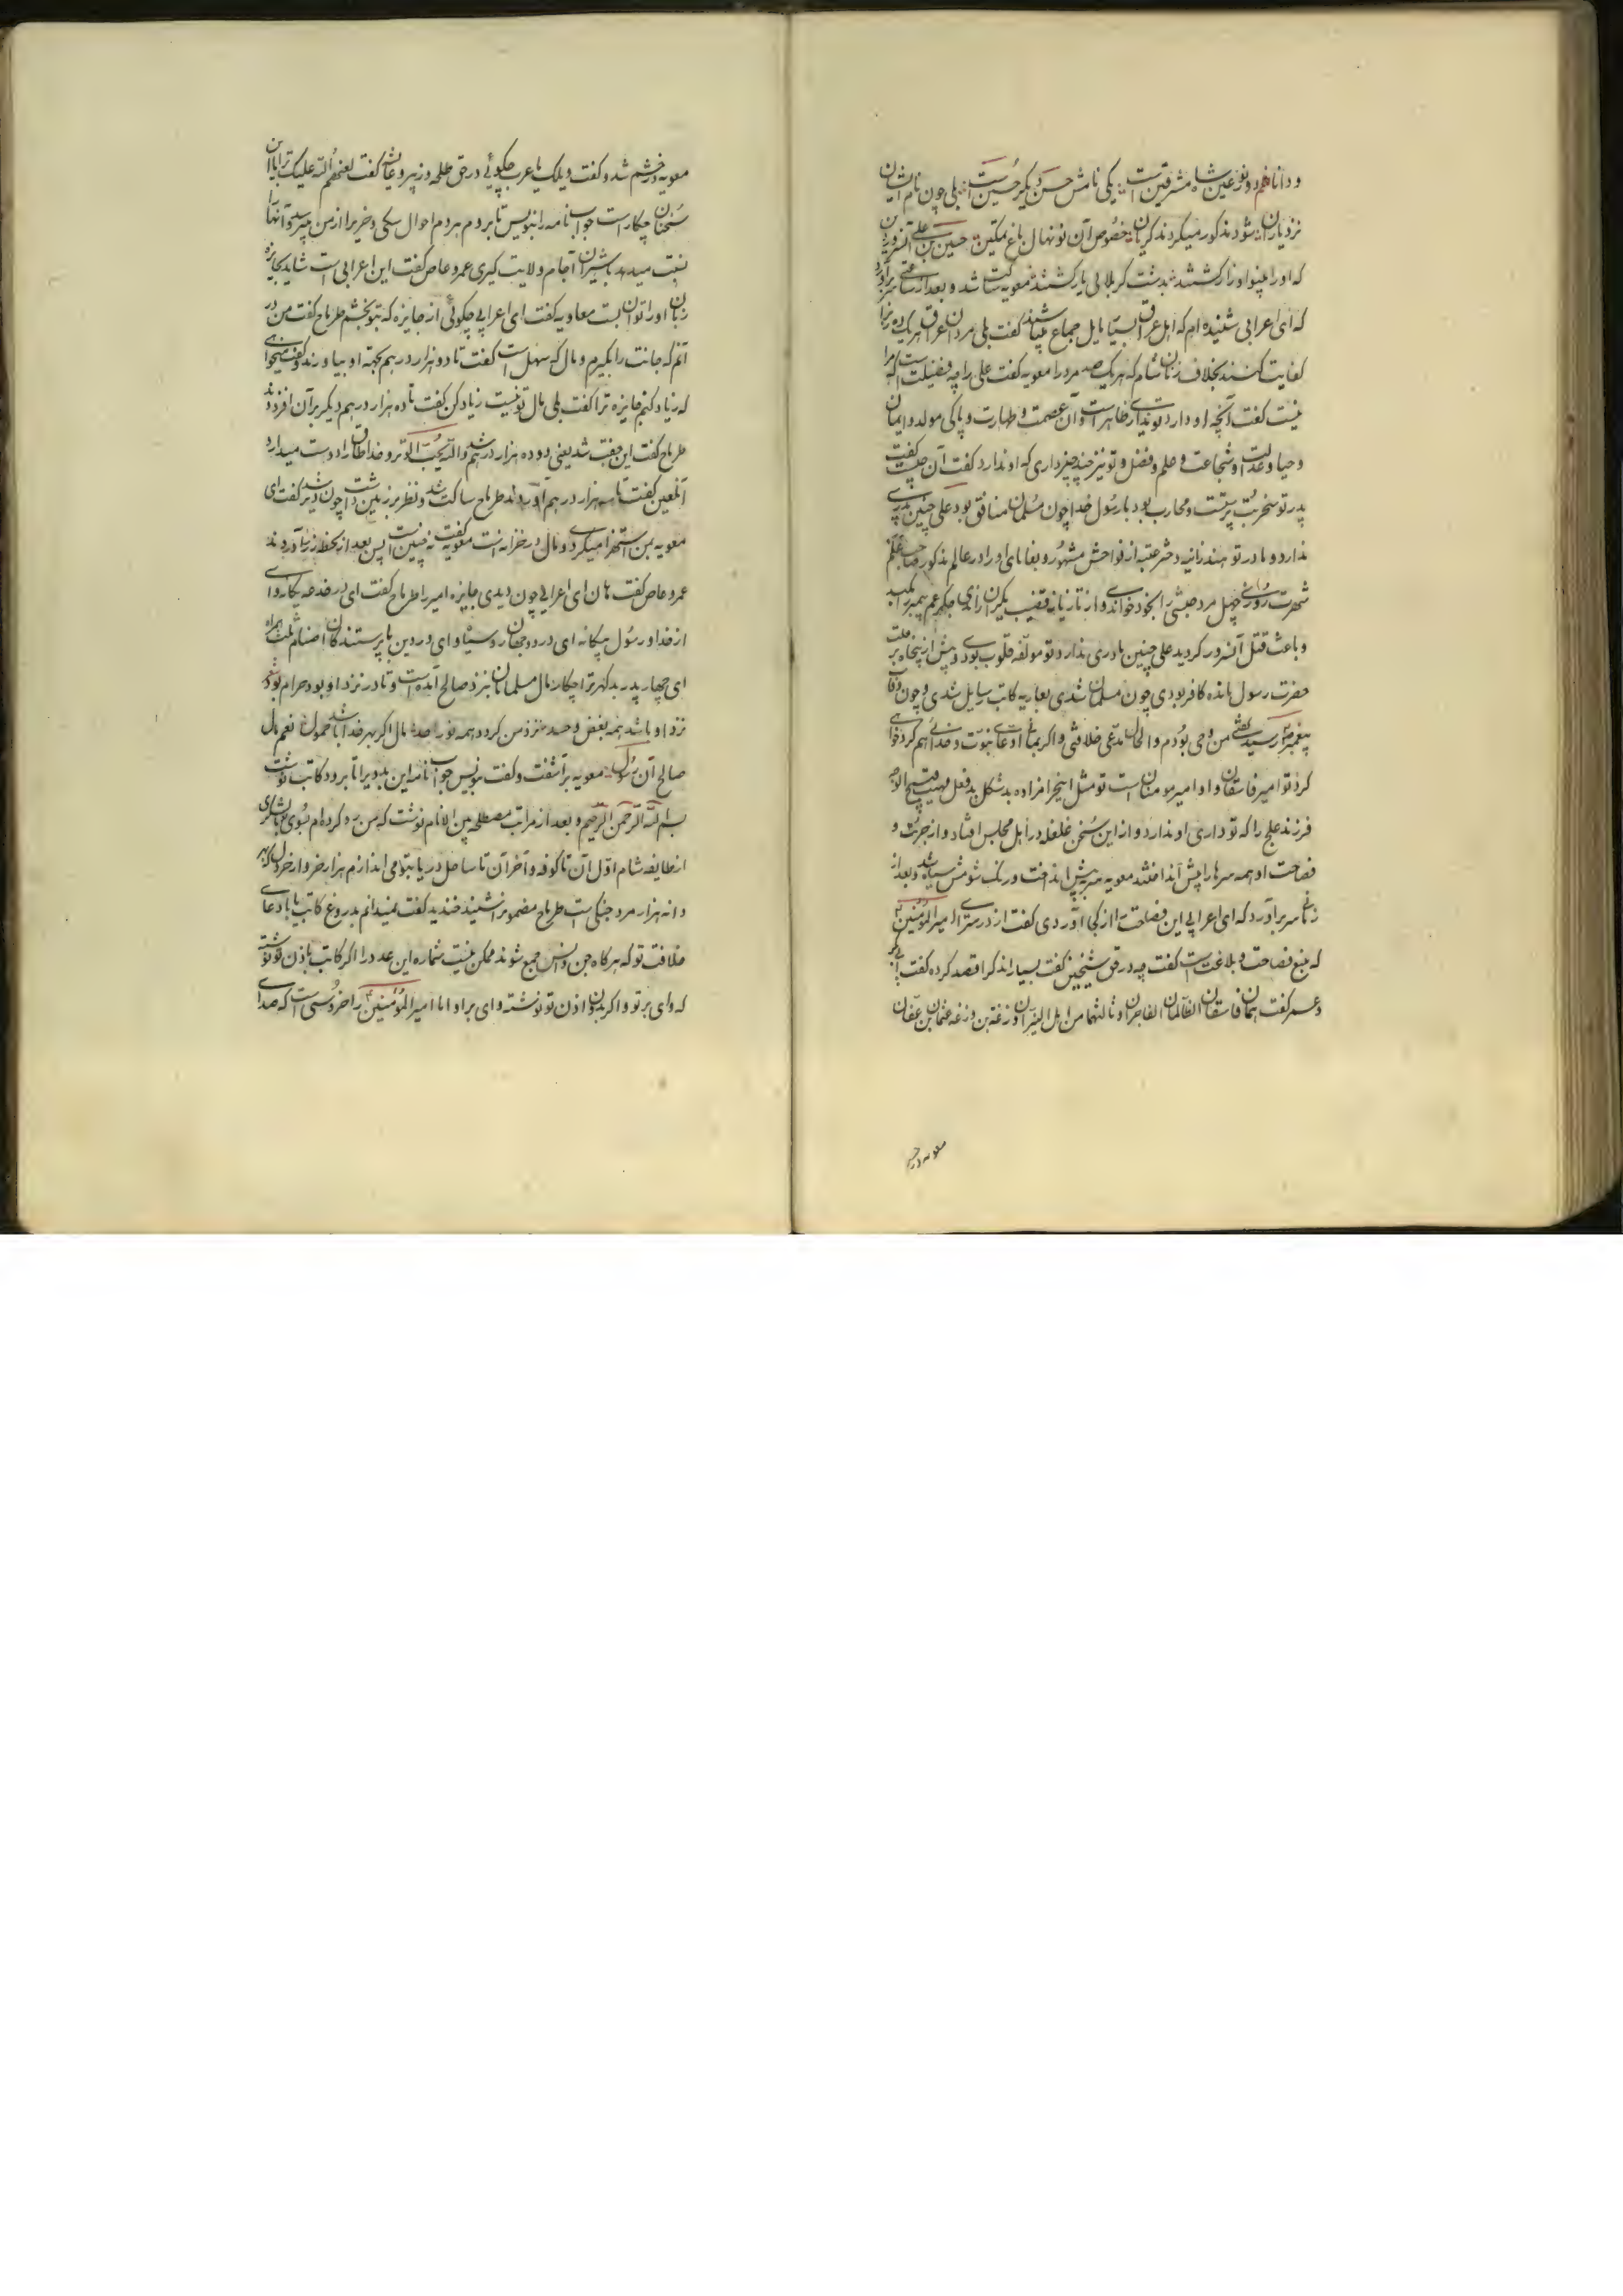 و دانا فهم دو نور عین شاه مشرقین است یکی نامش حسن و دیگر حسین است بلی چون نام ایشان
نزد یاران شود مذکور میکردند کریان خصوص آن نونهال باغ تمکین حسین بن علی آن سرور دین
که او را از کشتند بدشت کربلا کشتند معویه ساکت شد و بعد از ساعتی سر برآورد
که ای اعرابی شنیده ام که اهل عراق بسیار مایل جماع میباشند گفت بلی مردان عراق هر یک ده زن را
کفایت کنند بخلاف زنان شام که هر یک صد مرد را معویه گفت علی را چه فضیلت است که مرا
نیست گفت آنچه او دارد تو نداری ظاهر است و آن عصمت و طهارت و پاکی مولد و ایمان
و حیا و عدالت و شجاعت و علم و فضل و تو نیز چند چیز داری که او ندارد گفت آن چیست گفت
پدر تو صخر بت پرست و محارب بود با رسول خدا چون مسلمان شد منافق بود علی چنین پدری
ندارد و مادر تو هند زانیه دختر عتبه از فواحش مشهور و بغایای او را در عالم مذکور صاحب علم
شهرت روزی چهل مرد حبشی را بخود خواندی و از تازیانه قضیب یکیران راندی جگر عم پیمبر را مکید
و باعث قتل آنسرور کردید علی چنین مادری ندارد و تو مولفه قلوب بودی و پیش از پنجاه بر ملت
حضرت رسول مانده کافر بودی چون مسلمان شدی بعاریه کاتب رسایل شدی و چون وفات
پیغمبر رسید گفتی من وحی بودم و الحال مدعی خلافتی و اگر بمانی ادعای نبوت و خدائی هم کرد خواهی
کرد تو امیر فاسقان و او امیر مومنان است تو مثل اینحرامزاده بد شکل بد فعل مهیب قبیح الوجه
فرزند علج را که تو داری او ندارد و از این سخن غلغله در اهل مجلس افتاد و از جرئت و
فصاحت او همه سرها را پیش انداختند معویه سر بپیش انداخت و رنگ شومش سیاه شد و بعد از
زمانی سر برآورد که ای اعرابی این فصاحت را از کجا آوردی گفت از در سرای امیر المؤمنین
که منبع فصاحت و بلاغت است گفت چه در حق شیخین گفت بسیار اند کرا قصد کرده گفت ابی بکر
و عمر گفت هما فاسقان الظالمان الفاجران و ثالثهما من اهل النیران وزغة بن وزغه عثمان بن عفان
معویه در خشم
معویه در خشم شد و گفت ویلک یا عرب چکوئی در حق طلحه و زبیر و عایشه گفت لعنهم الله علیک ترا با این
سخنان چکار است جواب نامه را بنویس تا بروم مردم احوال سکی و خریرا از من پرسید و آنها را
نسبت میدهد با شیران آجام ولایت کیری عمرو عاص گفت این اعرابی است شاید بجایزه
زبان او را توان بست معاویه گفت ای اعرابی چکوئی از جایزه که بتو بخشم طرماح گفت من در
آنم که جانت را بگیرم و مال که سهل است گفت تا دو هزار درهم بجهته او بیاورند و گفت میخواهی
که زیاد کنم جایزه ترا گفت بلی مال تو نیست زیاد کن گفت تا ده هزار درهم دیگر بر آن افزودند
طرماح گفت این جفت شد یعنی دو ده هزار درهم والله یحب الوتر و خدا طاق را دوست میدارد
آنلعین گفت تا سه هزار درهم آوردند طرماح ساکت شد و نظر بر زمین داشت چون دیر شد گفت ای
معویه بمن استهزا میکردی و مال در خزانه است معویه گفت نه چنین است پس بعد از لحظه زر را آوردند
عمرو عاص گفت هان ای اعرابی چون دیدی جایزه امیر را طرماح گفت ای در خدعه یکار وای
از خدا و رسول بیگانه ای در دو جهان رو سیاه و ای در دین با پرستندگان اصنام همراه
ای چهار پدر بد کهر ترا چکار مال مسلمانان بنزد صالح آمده است و تا در نزد او بود حرام بود
نزد او باشد همه بغض و حسد نزد من کردد همه نور خدا مال اگر بهر خدا باشد حمول نعم مال
صالح آن رسول معویه برآشفت و گفت بنویس جواب نامه این بدویرا تا برود کاتب نوشت
بسم الله الرحمن الرحیم و بعد از مراتب مصطلحه بین الانام نوشت که من رد کرده ام بسوی تو لشکری
از طایفه شام اول آن تا کوفه و آخر آن تا ساحل دریا بتو می اندازم هزار خروار خردل که بهر
دانه هزار مرد جنگی است طرماح مضمون را شنید خندید گفت نمیدانم بدروغ کاتب یا بادعای
خلافت تو که هرگاه جن و انس جمع شوند ممکن نیست شماره این عدد را اگر کاتب باذن تو نوشته
که وای بر تو و اگر بدون اذن تو نوشته وای بر او اما امیر المؤمنین را خروسی است که صدای